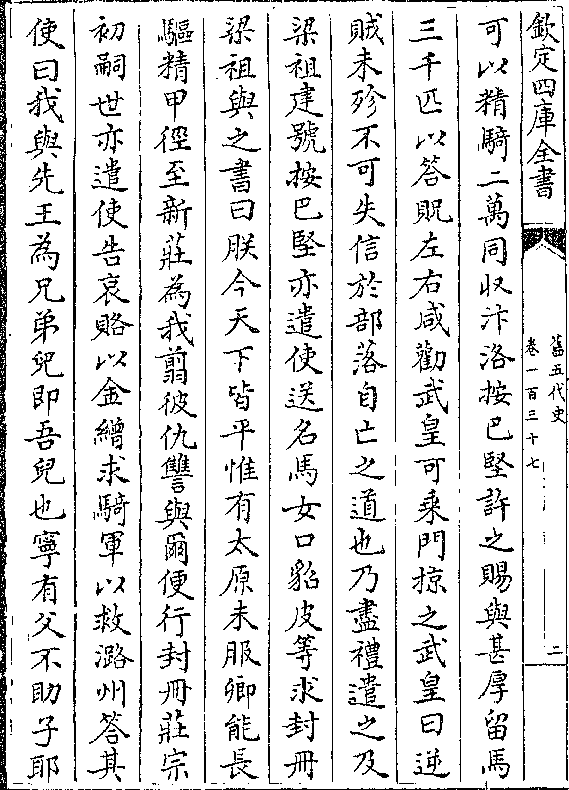 欽定四庫全書
舊五代史
卷一百三十七
二
可以精騎二萬同收汴洛按巴堅許之賜與甚厚留馬
三千匹以答貺左右咸勸武皇可乗間掠之武皇曰逆
賊未殄不可失信於部落自亡之道也乃盡禮遣之及
梁祖建號按巴堅亦遣使送名馬女口貂皮等求封冊
梁祖與之書曰朕今天下皆平惟有太原未服卿能長
驅精甲徑至新莊為我翦彼仇讐與爾便行封冊莊宗
初嗣世亦遣使告哀賂以金繒求騎軍以救潞州答其
使曰我與先王為兄弟兒即吾兒也寧有父不助子耶